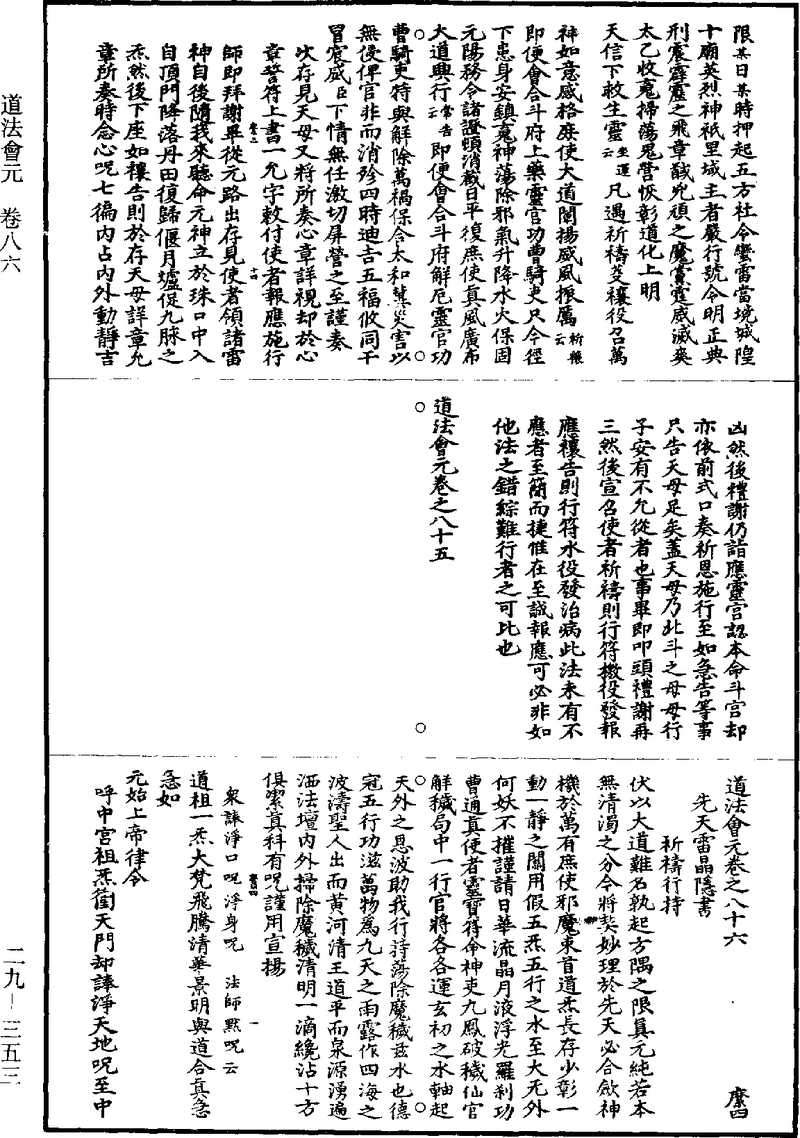 道法會元　卷八六
二九－三五三
限某日某時押起五方社令蠻雷當境城隍
十廟英烈神祇里域主者嚴行號令明正典
刑震霹靂之飛章馘兇頑之魔靈威滅奕
太乙收寃掃蕩鬼營恢彰道化上明
天信下救生靈坐運云凡遇祈禱芟禳役召萬
神如意感格庶使大道闡揚威風振厲祈禳云
即便會合斗府上藥靈官功曹騎吏只今徑
下患身安鎮寃神蕩除邪氣升降水火保固
元陽務令諸證頓消截日平復庶使真風廣布
大道興行常告云即便會合斗府解厄靈官功
曹騎吏符與解除萬禍保合太和冀災害以
無侵俾官非而消殄四時迪吉五福攸同干
冒宸威臣下情無任激切屏營之至謹奏
次存見天母又將所奏心章詳視却於心
章誓符上書一允字敕付使者報應施行
師即拜謝畢從元路出存見使者領諸雷
神自後隨我來聽命元神立於珠口中入
自頂門降落丹田復歸偃月爐促九脉之
炁然後下座如禳告則於存天母詳章允
章所奏時念心呪七徧內占內外動靜吉
凶然後禮謝仍詣應靈宮認本命斗宮却
亦依前式口奏祈恩施行至如急告等事
只告天母足矣蓋天母乃北斗之母母行
子安有不允從者也事畢即叩頭禮謝再
三然後宣召使者祈禱則行符檄役發報
應禳告則行符水役發治病此法未有不
應者至簡而捷惟在至誠報應可必非如
他法之錯綜難行者之可比也
道法會元卷之八十五
道法會元卷之八十六
先天雷晶隱書
祈禱行持
伏以大道難名孰起方隅之限真元純若本
無清濁之分今將契妙理於先天必合歛神
機於萬有庶使邪魔束首道炁長存少彰一
動一靜之關用假五炁五行之水至大无外
何妖不摧謹請日華流晶月液浮光羅刹功
曹通真使者靈寶符命神吏九鳳破穢仙官
解穢局中一行官將各各運玄初之水軸起
天外之恩波助我行持蕩除魔穢茲水也德
冠五行功滋萬物為九天之雨露作四海之
波濤聖人出而黃河清王道平而泉源湧遍
洒法壇內外掃除魔穢清明一滴纔沾十方
俱潔真科有呪謹用宣揚
衆誦淨口呪淨身呪　法師默呪云
道祖一炁大梵飛騰清華景明與道合真急
急如
元始上帝律令
呼中宮祖炁衝天門却誦淨天地呪至中